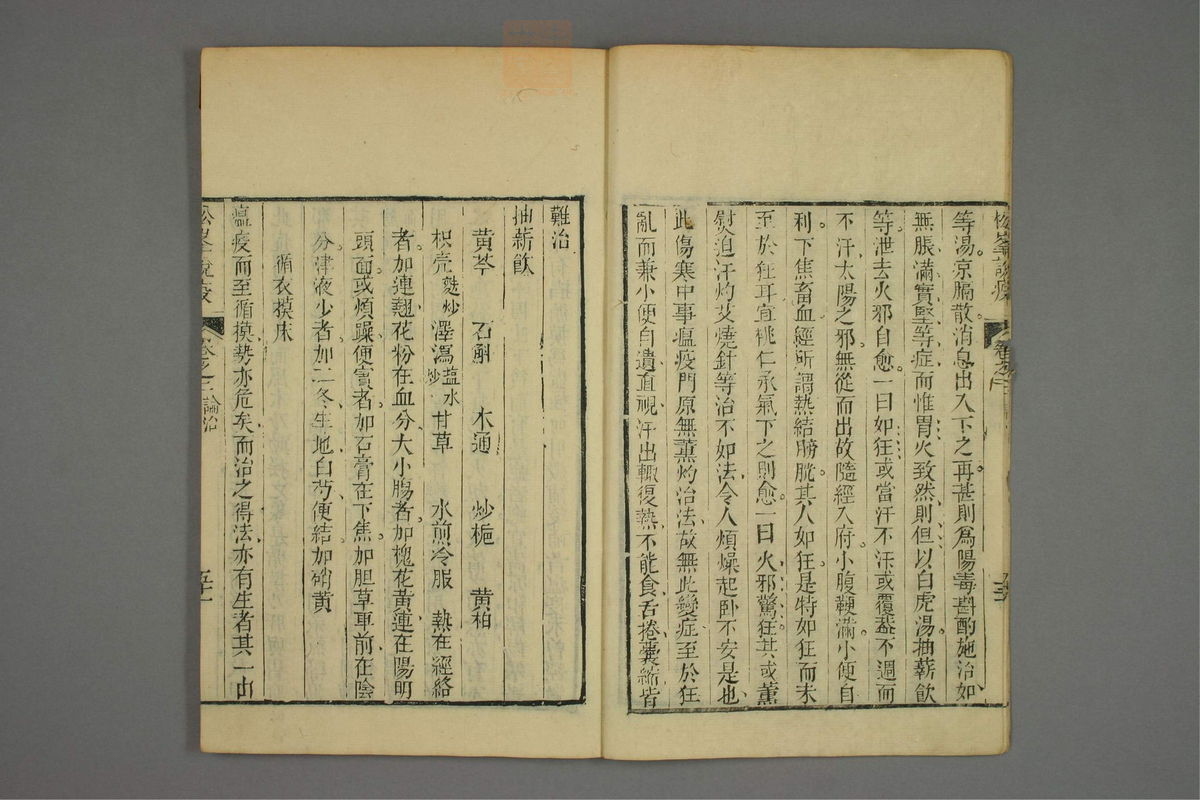 松峯說疫
卷之二
等湯凉膈散消息出入下之再甚則爲陽毒斟酌施治如
無脹滿實堅等症而惟胃火致然則但以白虎湯抽薪飲
等泄去火邪自愈一曰如狂或當汗不汗或覆蓋不週而
不汗太陽之邪無從而出故隨經入府小腹鞕滿小便自
利下焦畜血經所謂熱結膀胱其人如狂是特如狂而未
至於狂耳宜桃仁承氣下之則愈一曰火邪驚狂其或薰
熨迫汗灼艾燒針等治不如法令人煩燥起卧不安是也
此傷寒中事瘟疫門原無薰灼治法故無此變症至於狂
亂而兼小便自遺直視汗出輙復熱不能食舌捲囊縮皆
難治
抽薪飲
黄芩 石斛 木通 炒梔 黄柏
枳壳麩炒 澤瀉塩水炒 甘草 水煎冷服 熱在經絡
者加連翹花粉在血分大小腸者加槐花黄連在陽明
頭面或煩躁便實者加石膏在下焦加胆草車前在陰
分津液少者加二冬生地白芍便結加硝黄
循衣摸床
瘟疫而至循摸勢亦危矣而治之得法亦有生者其一由
松峯說疫
卷之二 論治